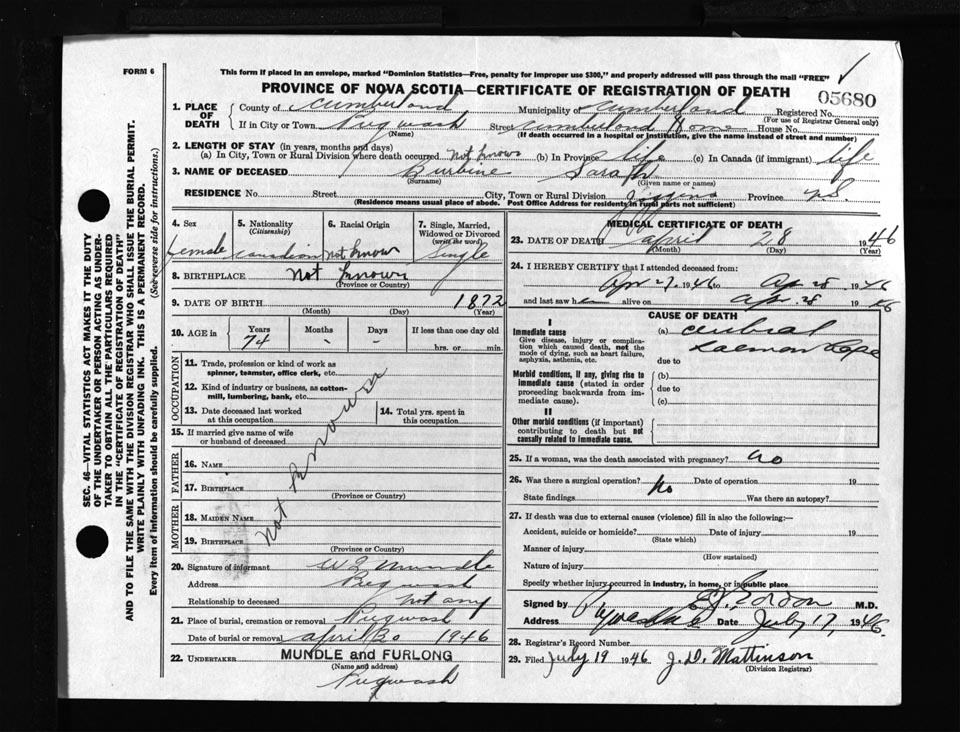 FORM 6
This form if placed in an envelope, marked "Dominion Statistics—Free, penalty for improper use $300," and properly addressed will pass through the mail "FREE"
PROVINCE OF NOVA SCOTIA—CERTIFICATE OF REGISTRATION OF DEATH
05680
1. PLACE OF DEATH
County of Cumberland Municipality of Cumberland Registered No.
(For use of Registrar General only)
If in City or Town Pugwash Street Cumberland Home House No.
(Name) (If death occurred in a hospital or institution, give the name instead of street and number)
2. LENGTH OF STAY (in years, months and days)
(a) In City, Town or Rural Division where death occurred Not known (b) In Province life (c) In Canada (if immigrant) life
3. NAME OF DECEASED Burbine Sarah
(Surname) (Given name or names)
RESIDENCE No. Street City, Town or Rural Division Joggins Province N.S.
(Residence means usual place of abode. Post Office Address for residents in rural parts not sufficient)
4. Sex
female
5. Nationality
(Citizenship)
Canadian
6. Racial Origin
Not know
7. Single, Married, Widowed or Divorced
(write the word)
Single
8. BIRTHPLACE Not known
(Province or Country)
9. DATE OF BIRTH 1872
(Month) (Day) (Year)
10. AGE in Years Months Days If less than one day old
74 - - hrs. or min.
OCCUPATION
11. Trade, profession or kind of work as spinner, teamster, office clerk, etc.
12. Kind of industry or business, as cotton-mill, lumbering, bank, etc.
13. Date deceased last worked at this occupation
14. Total yrs. spent in this occupation
15. If married give name of wife or husband of deceased
FATHER
16. Name
17. Birthplace
(Province or Country)
MOTHER
18. Maiden Name
19. Birthplace
(Province or Country)
Not known
20. Signature of informant Mundle
Address Pugwash
Relationship to deceased Not any
21. Place of burial, cremation or removal Pugwash
Date of burial or removal april 30 1946
22. UNDERTAKER MUNDLE and FURLONG
(Name and address)
Pugwash
MEDICAL CERTIFICATE OF DEATH
23. DATE OF DEATH April 28 1946
(Month) (Day) (Year)
24. I HEREBY CERTIFY that I attended deceased from:
Apr 27 1946 to Ap 28 1946
and last saw her alive on Ap 28 1946
CAUSE OF DEATH
I
Immediate cause
Give disease, injury or complication which caused death, not the mode of dying, such as heart failure, asphyxia, asthenia, etc.
(a) cerebral
due to
Morbid conditions, if any, giving rise to immediate cause (stated in order proceeding backwards from immediate cause).
(b)
due to
(c)
II
Other morbid conditions (if important) contributing to death but not causally related to immediate cause.
25. If a woman, was the death associated with pregnancy? No
26. Was there a surgical operation? No Date of operation 19
State findings Was there an autopsy?
27. If death was due to external causes (violence) fill in also the following:—
Accident, suicide or homicide? Date of injury 19
(State which)
Manner of injury
(How sustained)
Nature of injury
Specify whether injury occurred in industry, in home, or in public place
Signed by Gordon M.D.
Address Date July 17, 1946.
28. Registrar's Record Number
29. Filed July 19 1946 J. D. Mattinson
(Division Registrar)
SEC. 46—VITAL STATISTICS ACT MAKES IT THE DUTY
OF THE UNDERTAKER OR PERSON ACTING AS UNDER-
TAKER TO OBTAIN ALL THE PARTICULARS REQUIRED
IN THE "CERTIFICATE OF REGISTRATION OF DEATH"
AND TO FILE THE SAME WITH THE DIVISION REGISTRAR WHO SHALL ISSUE THE BURIAL PERMIT.
WRITE PLAINLY WITH UNFADING INK. THIS IS A PERMANENT RECORD.
Every item of information should be carefully supplied. (See reverse side for instructions.)